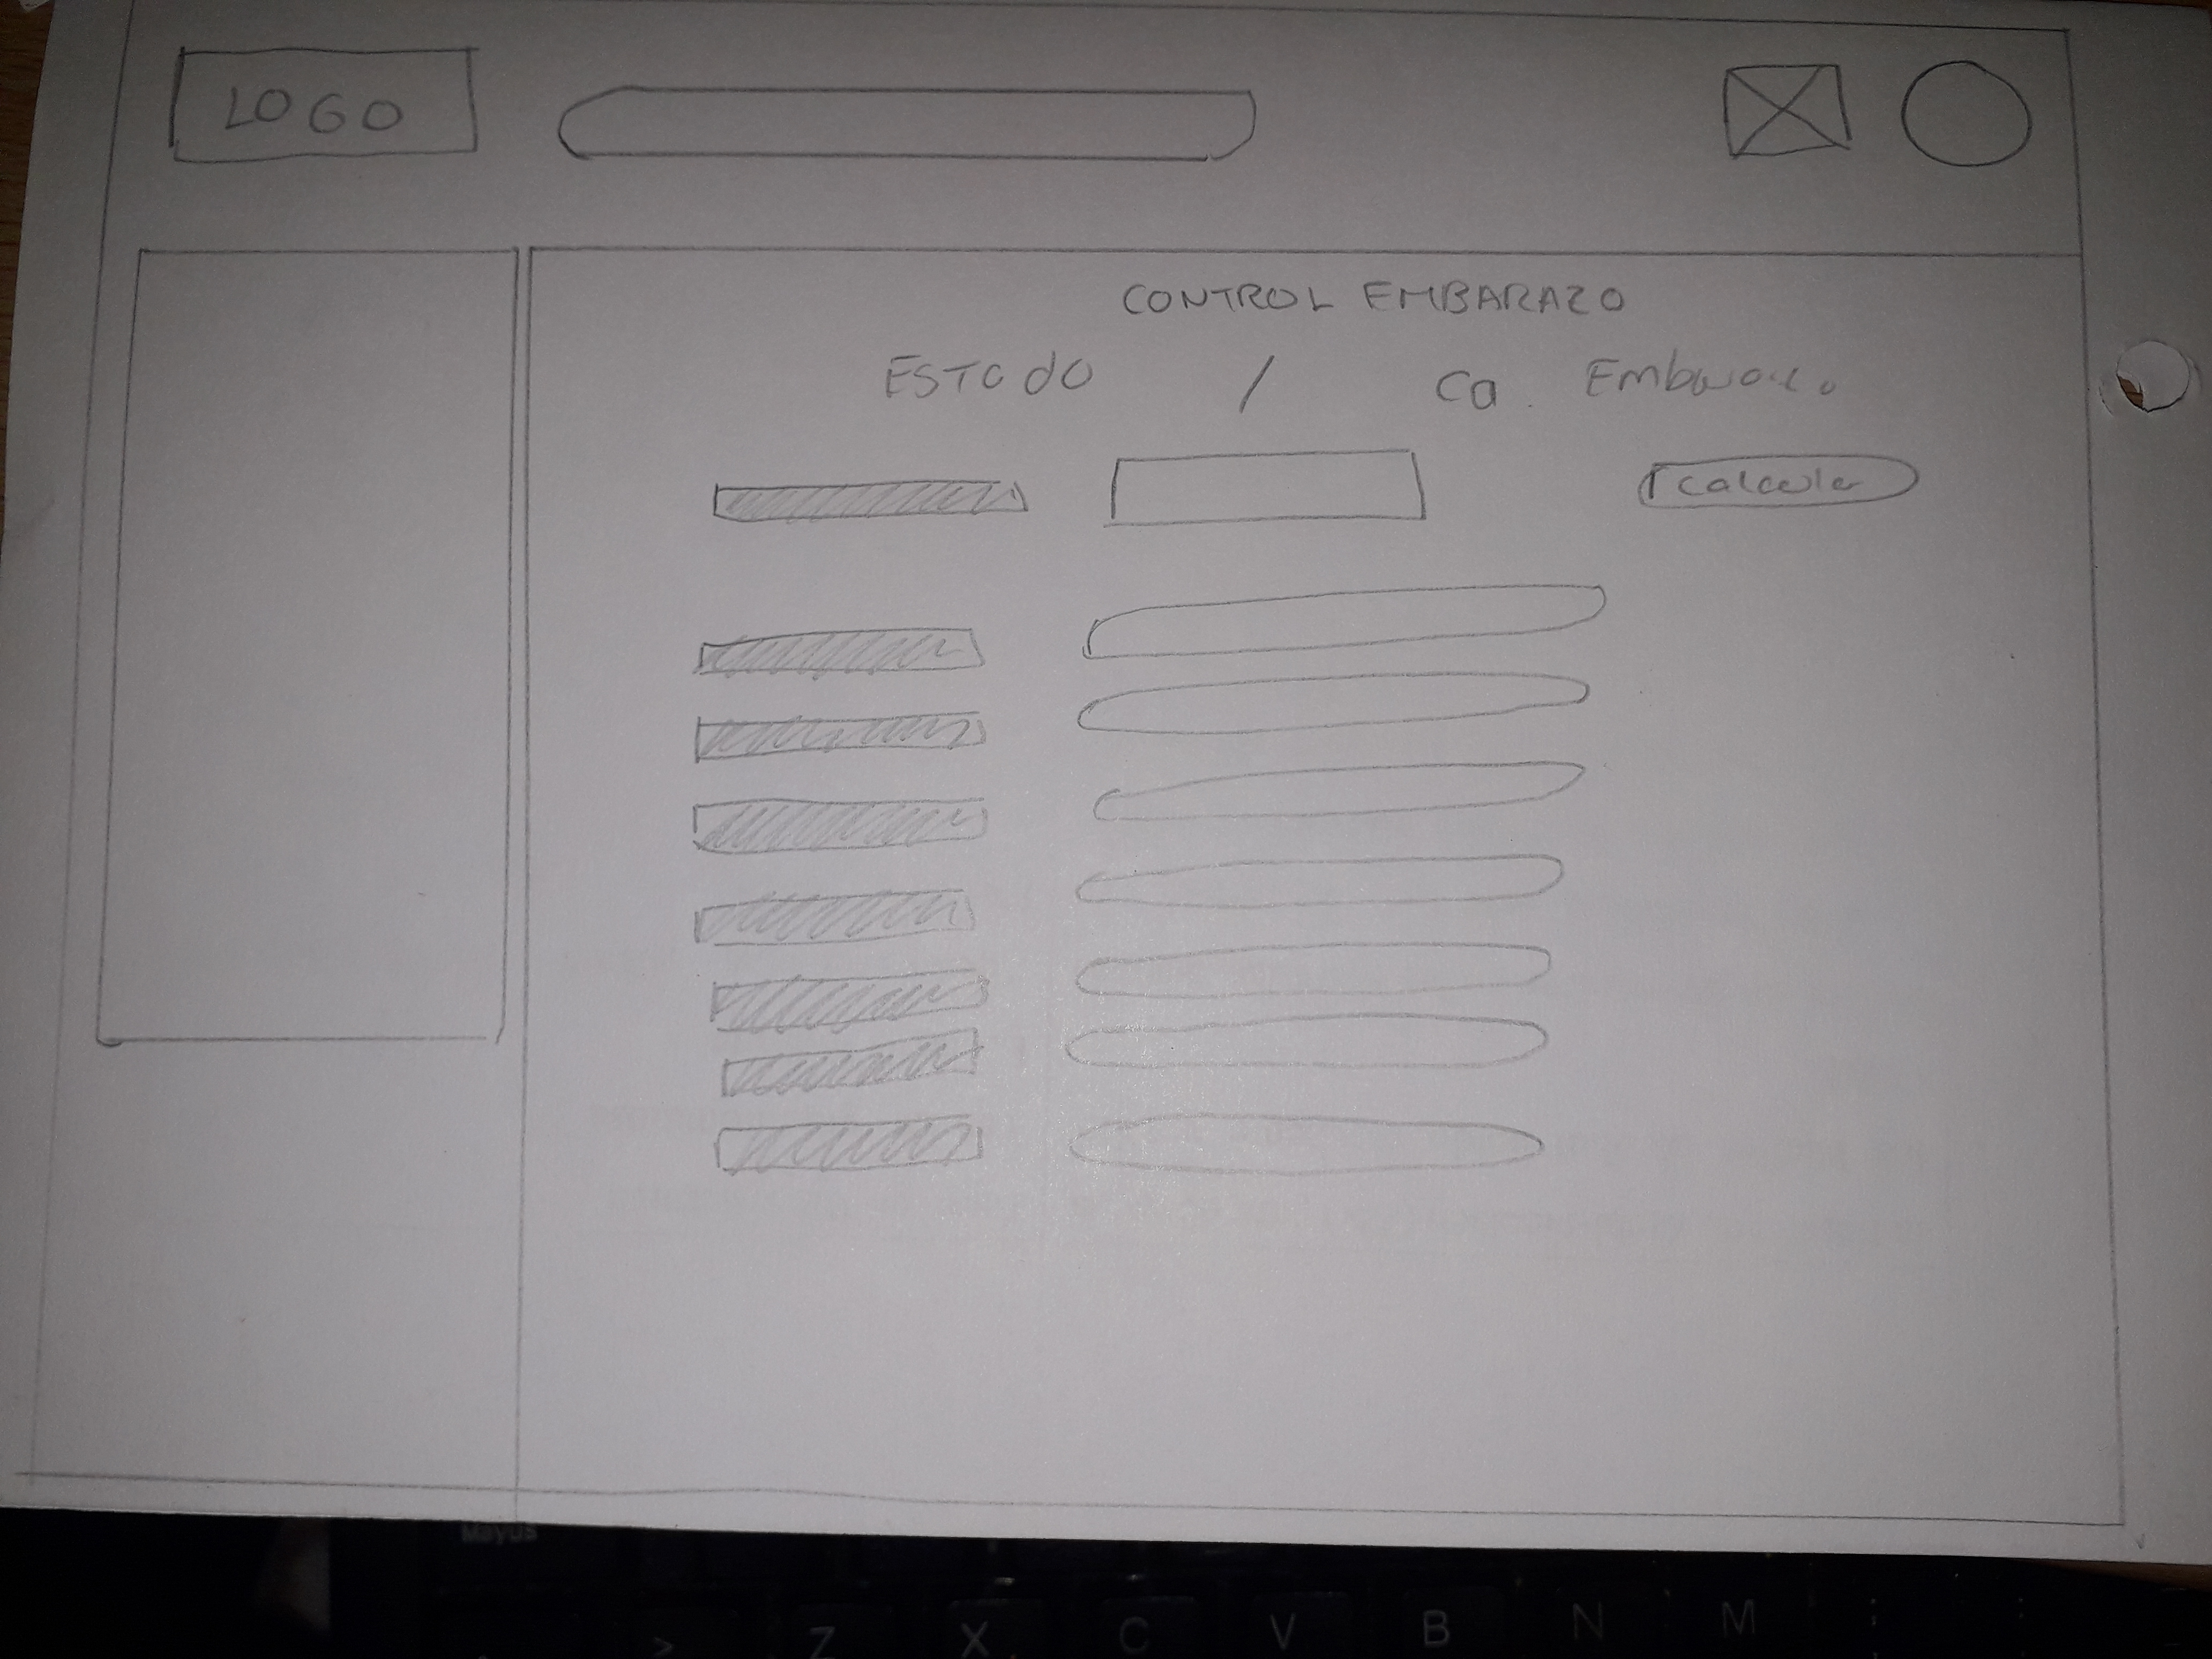 LOGO
CONTROL EMBARAZO
ESTADO / Ca. Embarazo
Calcular
Mayus
> Z X C V B N M ; :